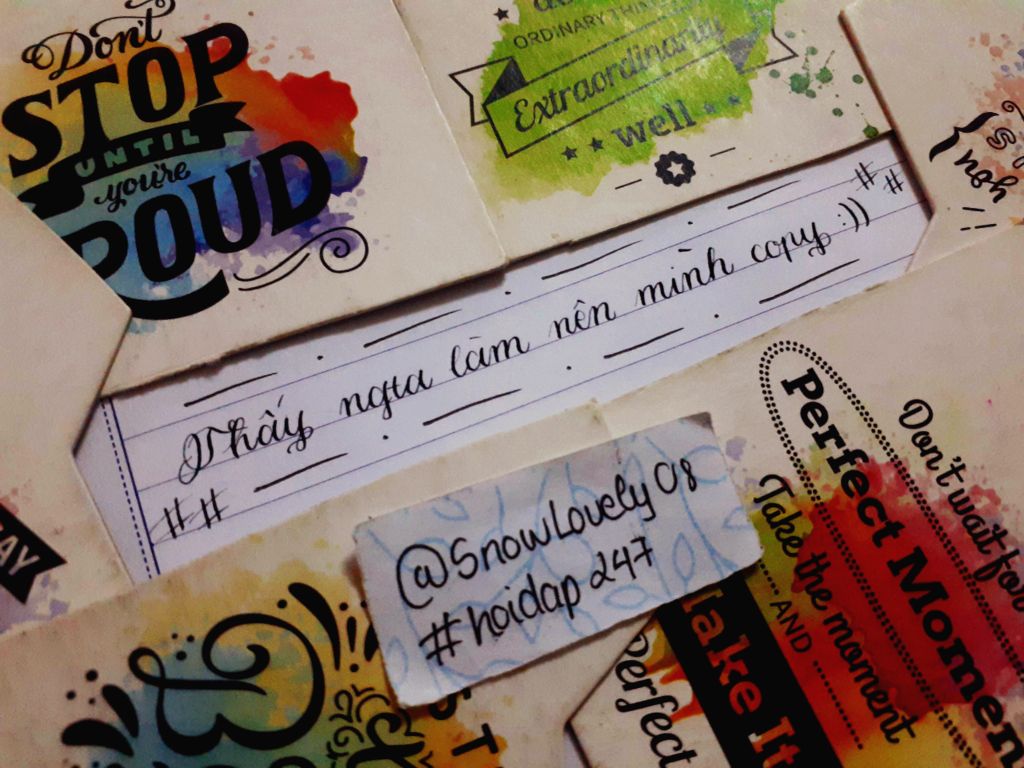 Don't
STOP
UNTIL
you're
PROUD
ORDINARY
Extraordinarily
well
you
##
Thấy ngta làm nên mình copy :))
##
@SnowLovely08
#hoidap247
Don't wait for
Perfect Momen
Take the moment
AND
Make It
Perfect
AY